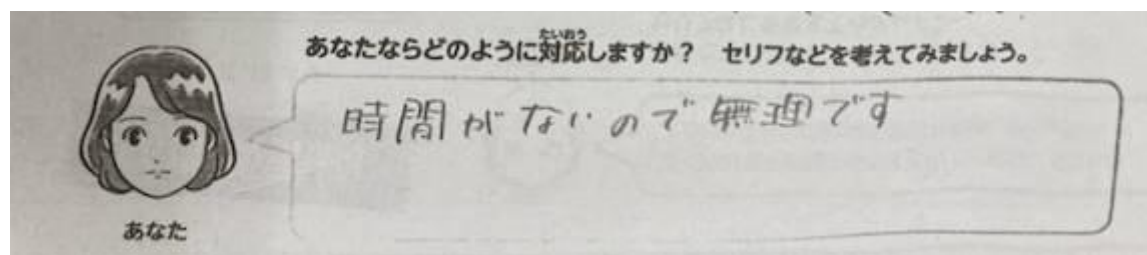 あなたならどのように対応しますか? セリフなどを考えてみましょう。
時間がないので無理です
あなた